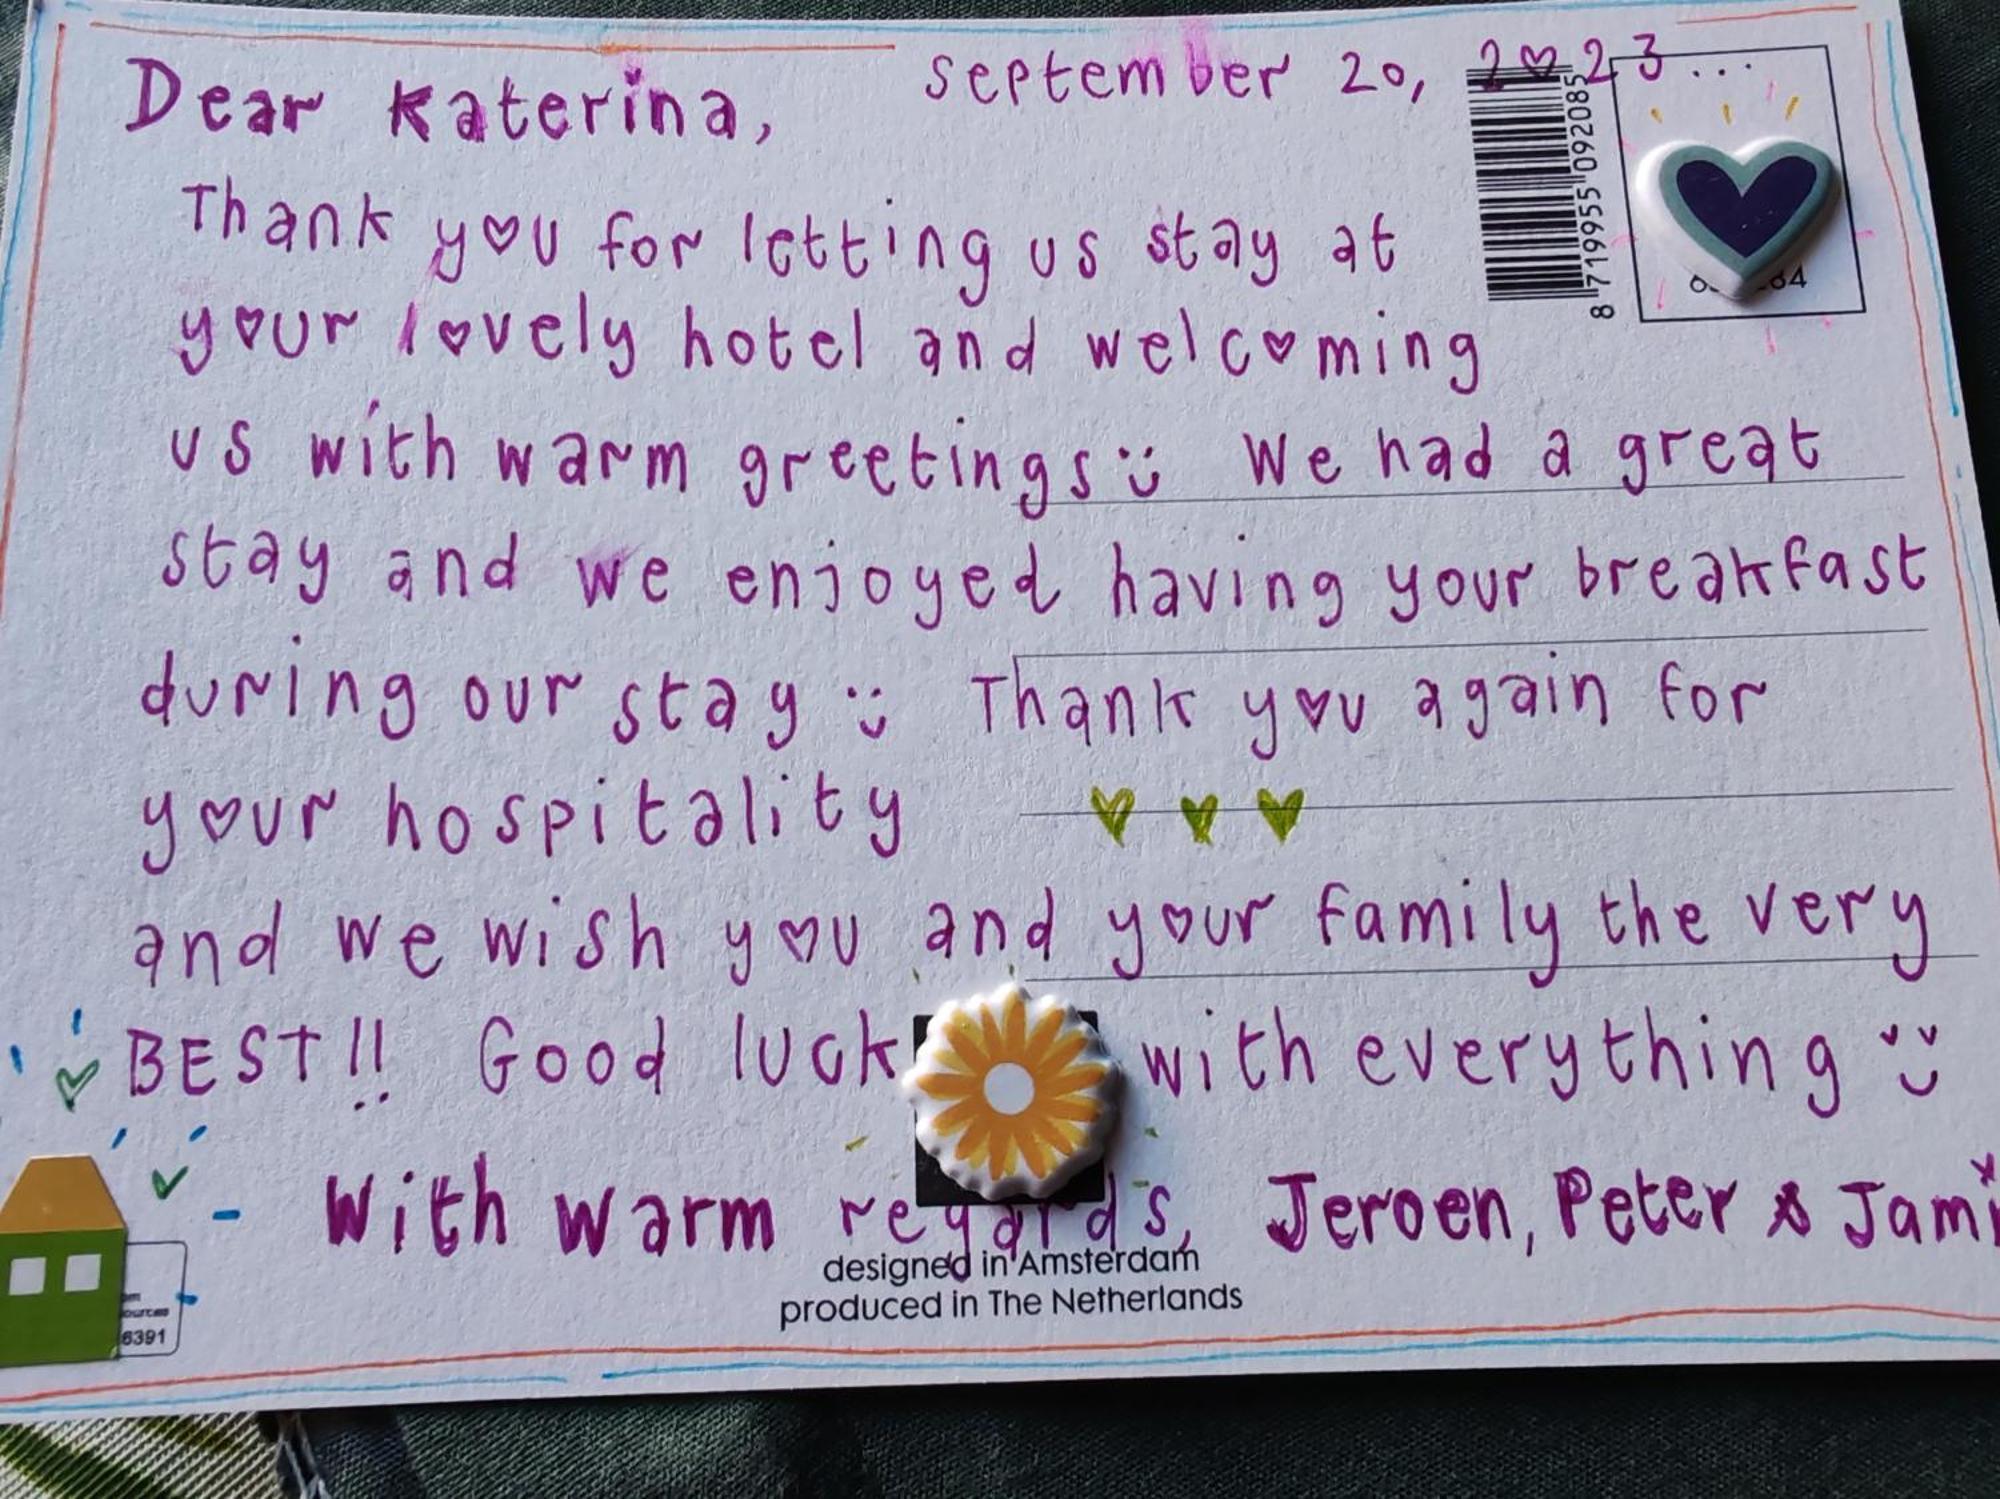 Dear Katerina, September 20, 2023...
Thank you for letting us stay at
your lovely hotel and welcoming
us with warm greetings We had a great
stay and we enjoyed having your breakfast
during our stay Thank you again for
your hospitality
and we wish you and your family the very
BEST!! Good luck with everything
With warm regards, Jeroen, Peter & Jami
designed in Amsterdam
produced in The Netherlands
8 719955 092085
6391